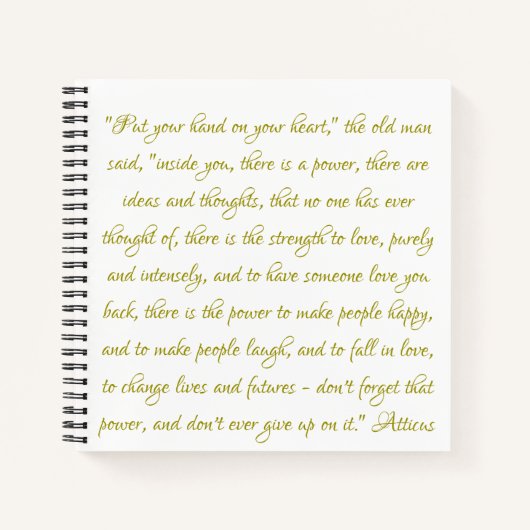 "Put your hand on your heart," the old man
said, "inside you, there is a power, there are
ideas and thoughts, that no one has ever
thought of, there is the strength to love, purely
and intensely, and to have someone love you
back, there is the power to make people happy,
and to make people laugh, and to fall in love,
to change lives and futures - don't forget that
power, and don't ever give up on it." Atticus